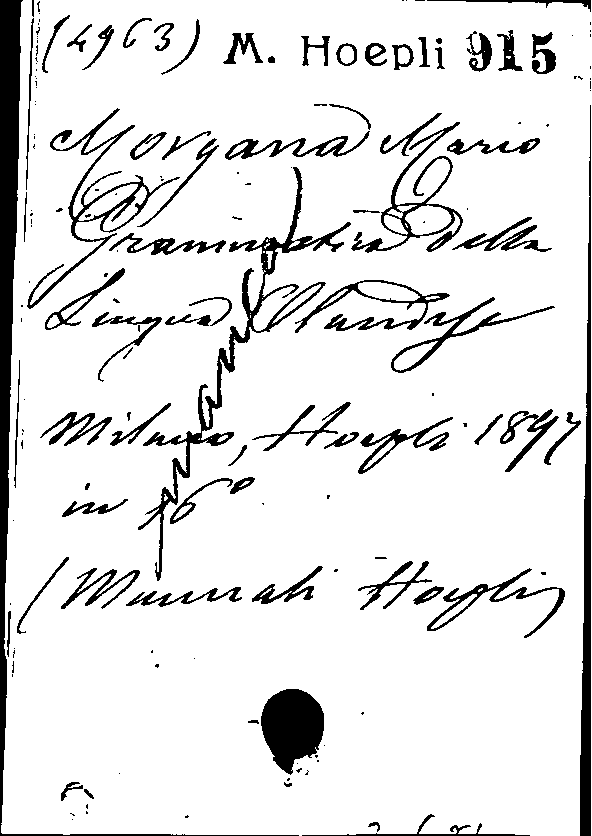 (4963) M. Hoepli 915
Morgana Mario
Grammatica della
Lingua Olandese
Milano, Hoepli 1897
in 16°
(Manuali Hoepli)
manca